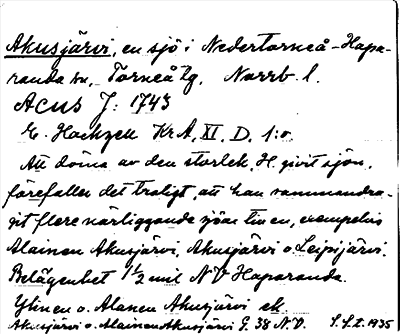 Akusjärvi, en sjö i Nedertorneå-Hapa-
randa sn., Torneå tg. Norrb. l.
Acus J: 1743
E. Hackzell Kr A, XI, D, 1:o.
Att döma av den storlek, H. givit sjön,
förefaller det troligt, att han sammandra-
git flere närliggande sjöar till en, exempelvis
Alainen Akusjärvi, Akusjärvi o Leipijärvi.
Belägenhet 1 1/2 mil NV Haparanda.
Ylinen o. Alanen Akusjärvi ek.
Akusjärvi o. Alainen Akusjärvi G. 38 NO. 1935